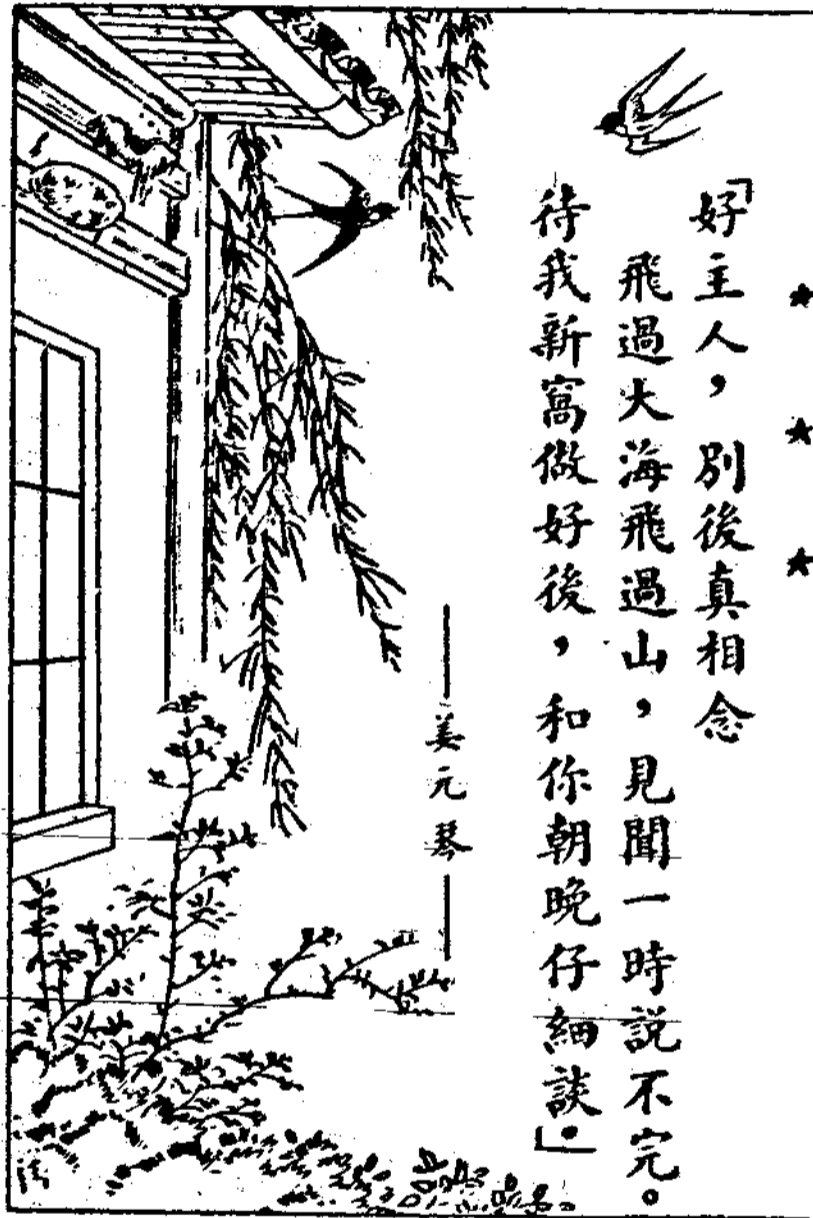 ★ ★ ★
「好主人,別後真相念
飛過大海飛過山,見聞一時説不完。
待我新窩做好後,和你朝晚仔細談。」
——姜元琴——